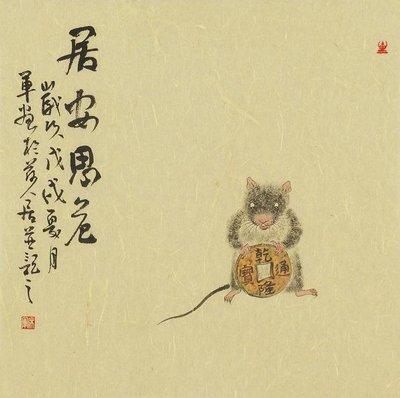 居安思危
歲次戊戌夏月
軍畫於人居並記之
乾隆通寶